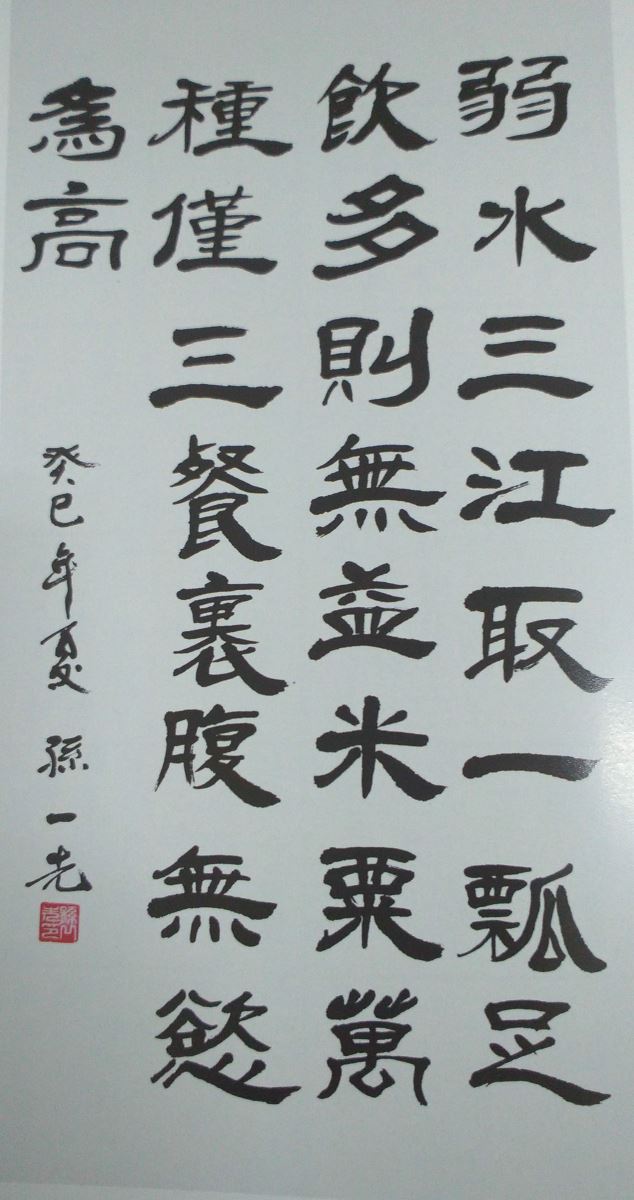 弱水三江取一瓢足
飲多則無益米粟萬
種僅三餐裏腹無慾
為高
癸巳年夏 孫一先